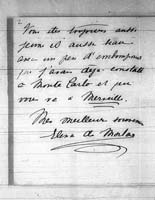 2
Vous êtes toujours aussi
jeune et aussi beau
avec un peu d'embonpoint
que j'avais déjà constaté
à Monte Carlo et qui
vous va à Merveille.
Mes meilleurs souvenirs
Elena de